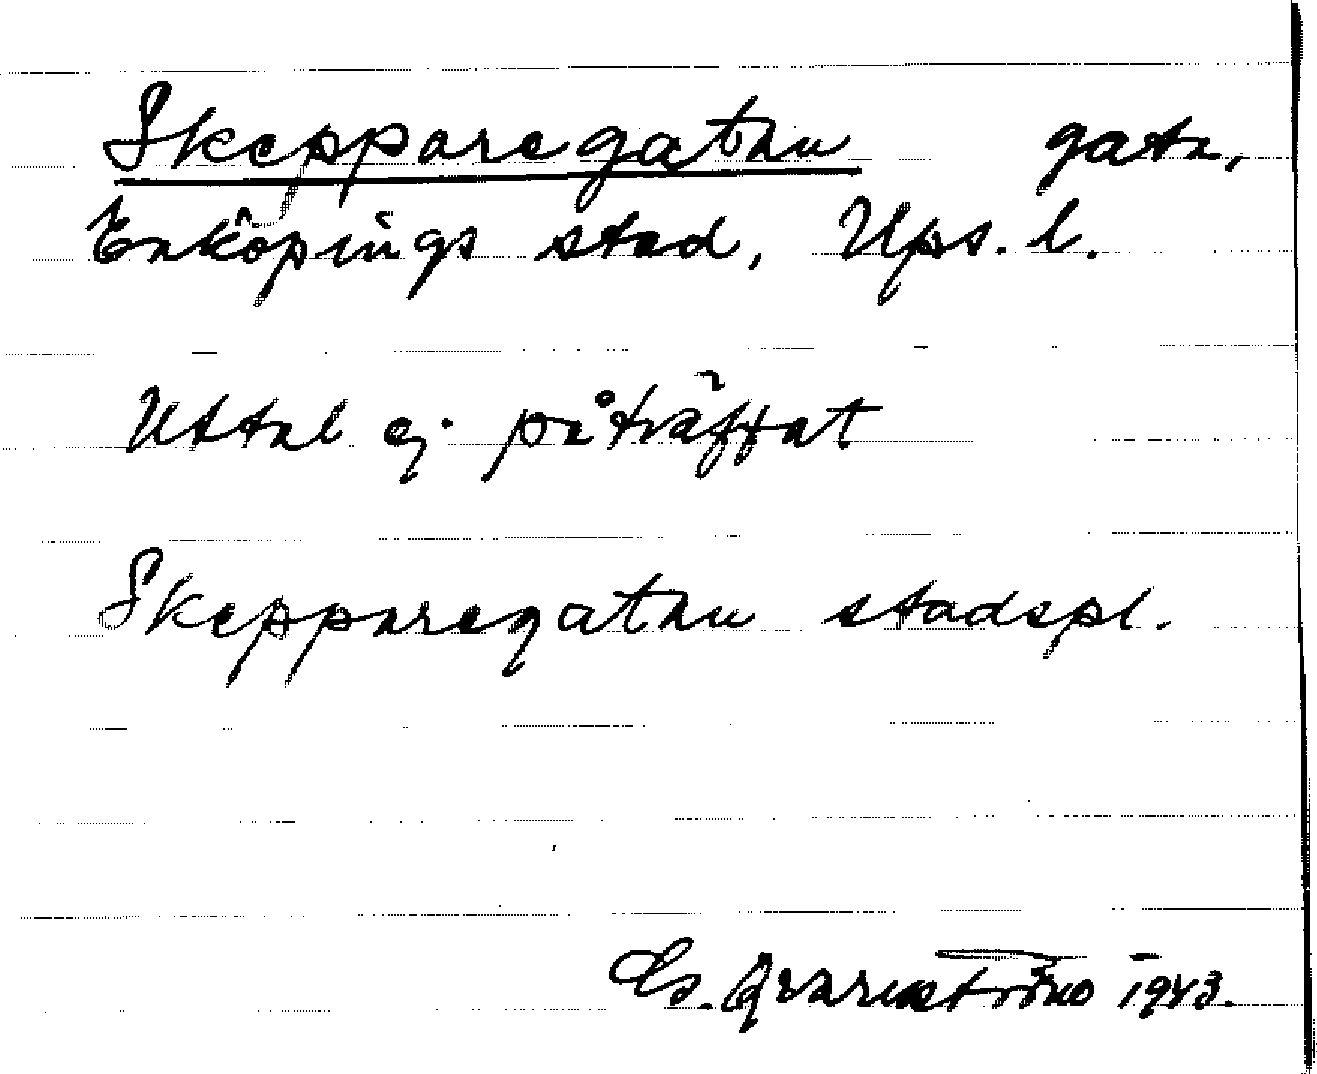 Skepparegatan gata,
Enköpings stad, Ups. l.
Uttal ej påträffat
Skepparegatan stadspl.
Qvarnström 1943.